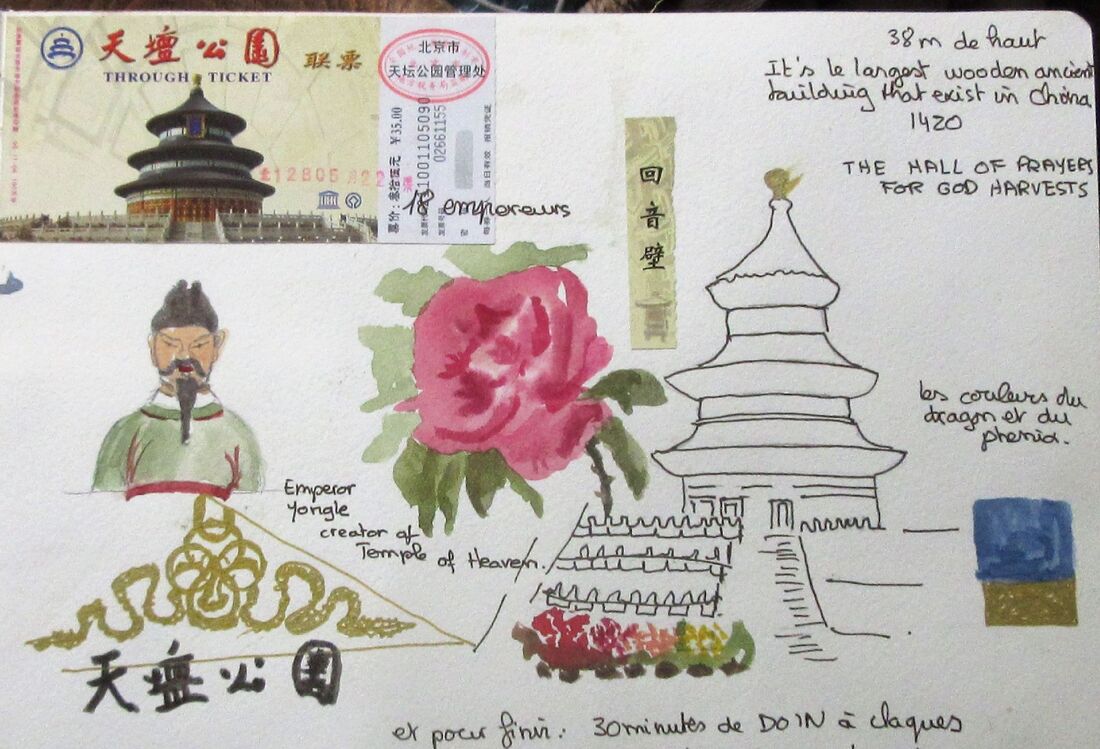 天壇公園 联票
THROUGH TICKET
北京市
天坛公园管理处
票价:叁拾伍元 ¥35.00
02661155
12805
18 empereurs
回音壁
38m de haut
It's le largest wooden ancient
building that exist in China
1420
THE HALL OF PRAYERS
FOR GOD HARVESTS
les couleurs du
dragon et du
phenix.
Emperor
Yongle
creator of
Temple of Heaven.
天壇公園
et pour finir: 30 minutes de DO IN à claques